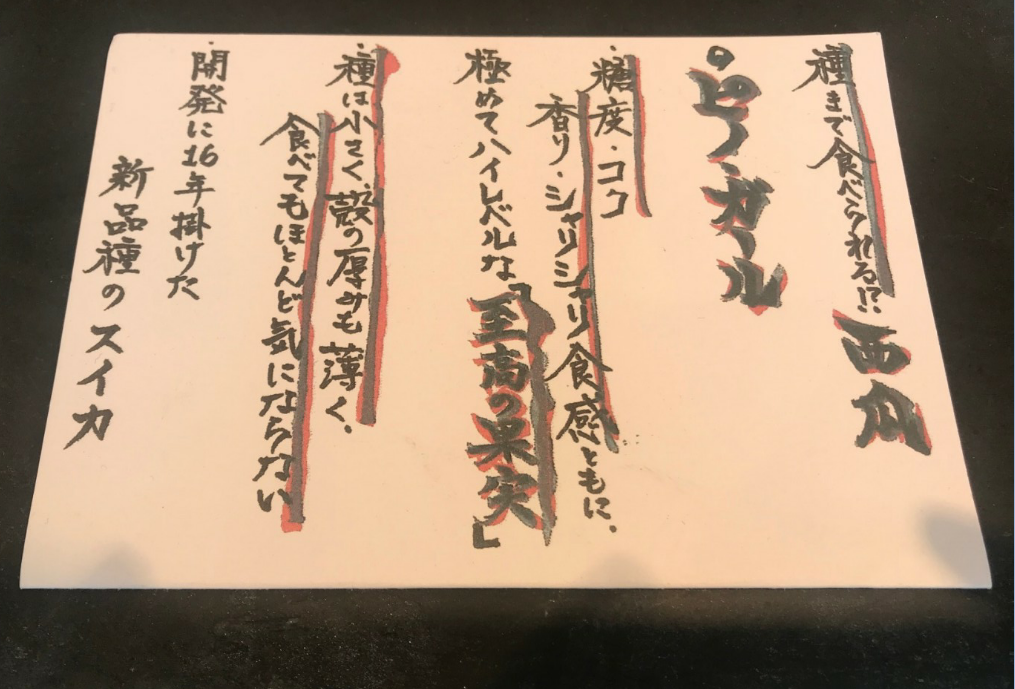 種まで食べられる!? 西瓜
・ピノ・ガール
・糖度・コク
香り・シャリシャリ食感ともに、
極めてハイレベルな「至高の果実」
・種は小さく、殻の厚みも薄く、
食べてもほとんど気にならない
・開発に16年掛けた
新品種のスイカ